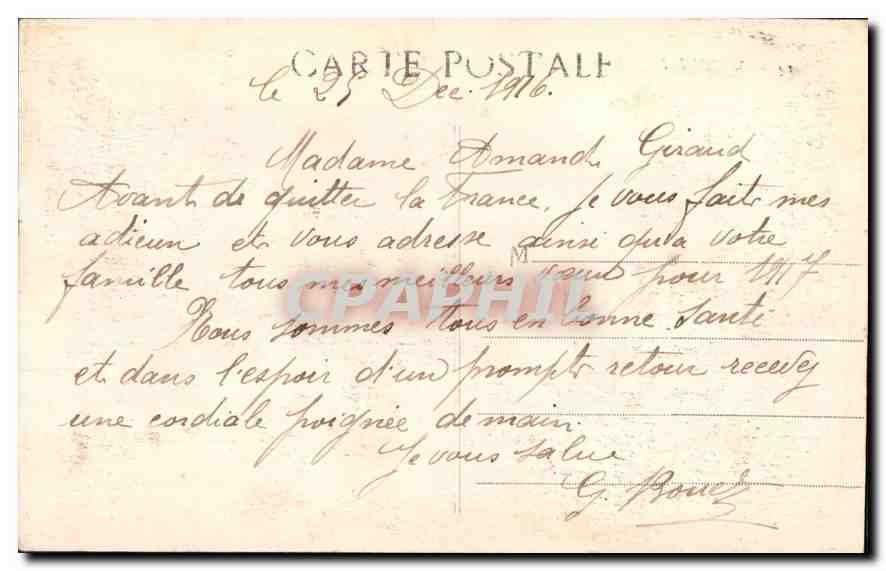 CARTE POSTALE
le 25 Dec. 1916.
Madame Amand Giraud
Avant de quitter la France, je vous fait mes
adieux et vous adresse ainsi qu'a votre
M
famille tous mes meilleurs vœux pour 1917
CPAPHIL
Nous sommes tous en bonne santé
et dans l'espoir d'un prompt retour recevez
une cordiale poignée de main.
Je vous salue
G.